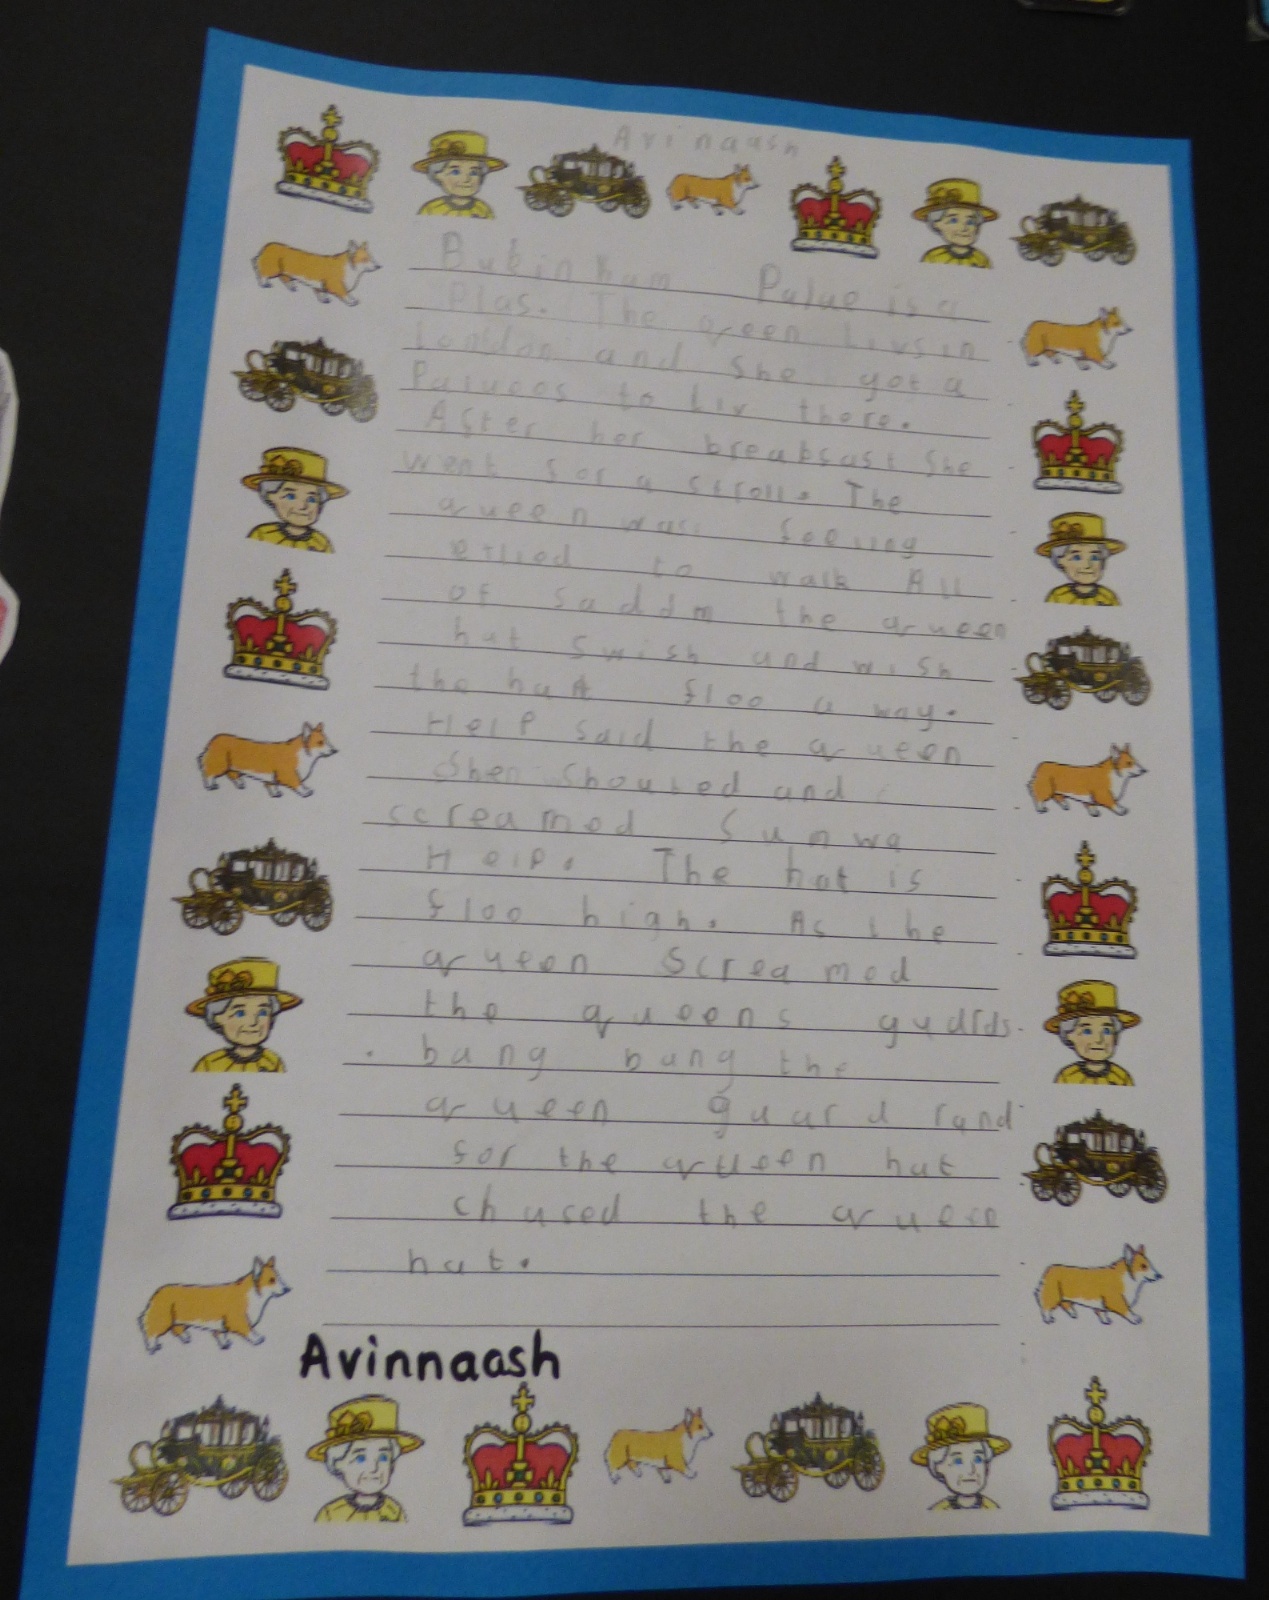 Avinaash
Bukinham Palue is a
Plas. The qreen livs in
London and she got a
Paluces to liv there.
After her breakfast she
went for a stroll. The
queen was feeling
to walk All
of saddm the queen
hat swish and wish
the hat floo a way.
Help said the queen
Shen shouted and
screamed
Help. The hat is
floo high. As the
queen screamed
the queens gudrds.
bang bang the
queen guard rand
for the queen hat
chased the queen
hat.
Avinnaash